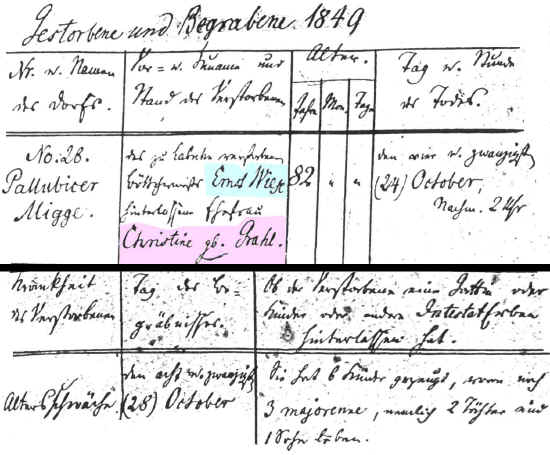 Gestorbene und Begrabene 1849
Nr. u. Namen
des Dorfs.
Vor= u. Zuname und
Stand des Verstorbenen
Alter.
Jahr
Mon.
Tage
Tag u. Stunde
des Todes.
No. 28.
Pallubicer
Migge.
des zu verstorbenen
Ernst Wiez
hinterlassene Ehefrau
Christine gb. Prahl.
82
"
"
den vier u. zwanzigst
(24) October,
Nachm. 2 Uhr
Krankheit
des Verstorbenen
Tag des Be=
gräbnisses.
Ob der Verstorbene eine Gattin oder
Kinder oder andere Intestaterben
hinterlassen hat.
Altersschwäche
den acht u. zwanzigst
(28) October
Sie hat 6 Kinder gezeugt, wovon noch
3 majorenne, nemlich 2 Töchter und
1 Sohn leben.